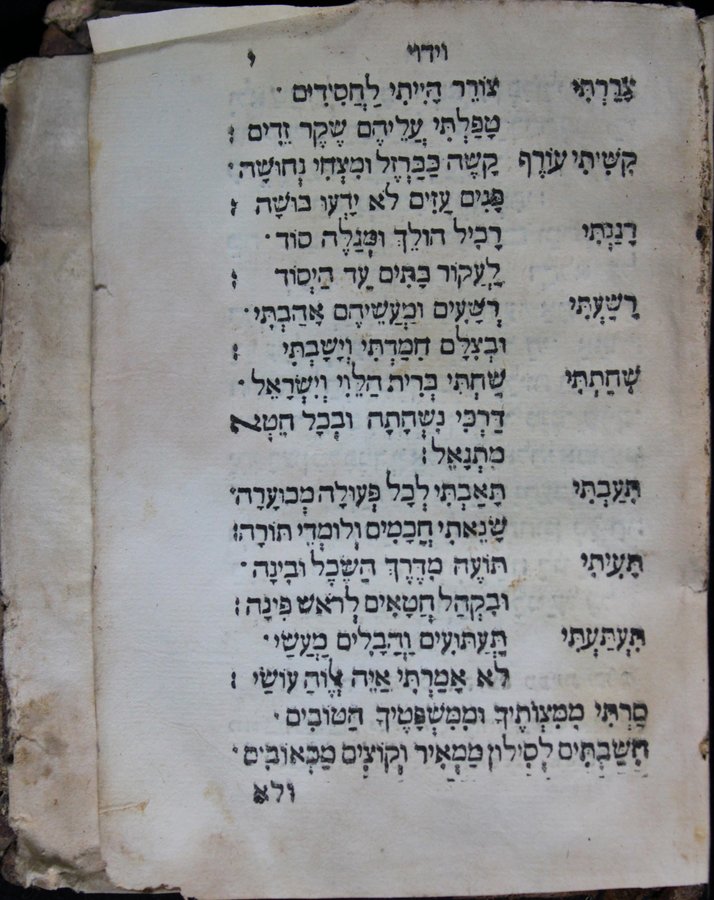 וידוי י
צָרַרְתִּי צוֹרֵר הָיִיתִי לַחֲסִידִים ·
טָפַלְתִּי עֲלֵיהֶם שֶׁקֶר זֵדִים :
קִשִּׁיתִי עוֹרֶף קָשֶׁה כַּבַּרְזֶל וּמִצְחִי נְחוּשָׁה ·
פָּנִים עַזִּים לֹא יָדְעוּ בּוּשָׁה :
רָגַנְתִּי רָכִיל הוֹלֵךְ וּמְגַלֶּה סוֹד ·
לַעֲקוֹר בָּתִּים עַד הַיְסוֹד :
רָשַׁעְתִּי רְשָׁעִים וּמַעֲשֵׂיהֶם אָהַבְתִּי ·
וּבְצִלָּם חִמַּדְתִּי וְיָשַׁבְתִּי :
שִׁחַתְתִּי שִׁחַתִּי בְּרִית הַלֵּוִי וְיִשְׂרָאֵל ·
דַּרְכִּי נִשְׁחָתָה וּבְכָל חֵטְא
מִתְגָּאֵל :
תִּעַבְתִּי תָּאַבְתִּי לְכָל פְּעוּלָה מְכוֹעָרָה ·
שָׂנֵאתִי חֲכָמִים וְלוֹמְדֵי תוֹרָה :
תָּעִיתִי תּוֹעֶה מִדֶּרֶךְ הַשֵּׂכֶל וּבִינָה ·
וּבִקְהַל חַטָּאִים לְרֹאשׁ פִּינָה :
תִּעְתַּעְתִּי תַּעְתּוּעִים וַהֲבָלִים מַעֲשַׂי ·
לֹא אָמַרְתִּי אַיֵּה אֱלוֹהַּ עוֹשַׂי :
סַרְתִּי מִמִּצְוֹתֶיךָ וּמִמִּשְׁפָּטֶיךָ הַטּוֹבִים ·
חֲשַׁבְתִּים לְסִילּוֹן מַמְאִיר וְקוֹצִים מַכְאוֹבִים ·
ולא